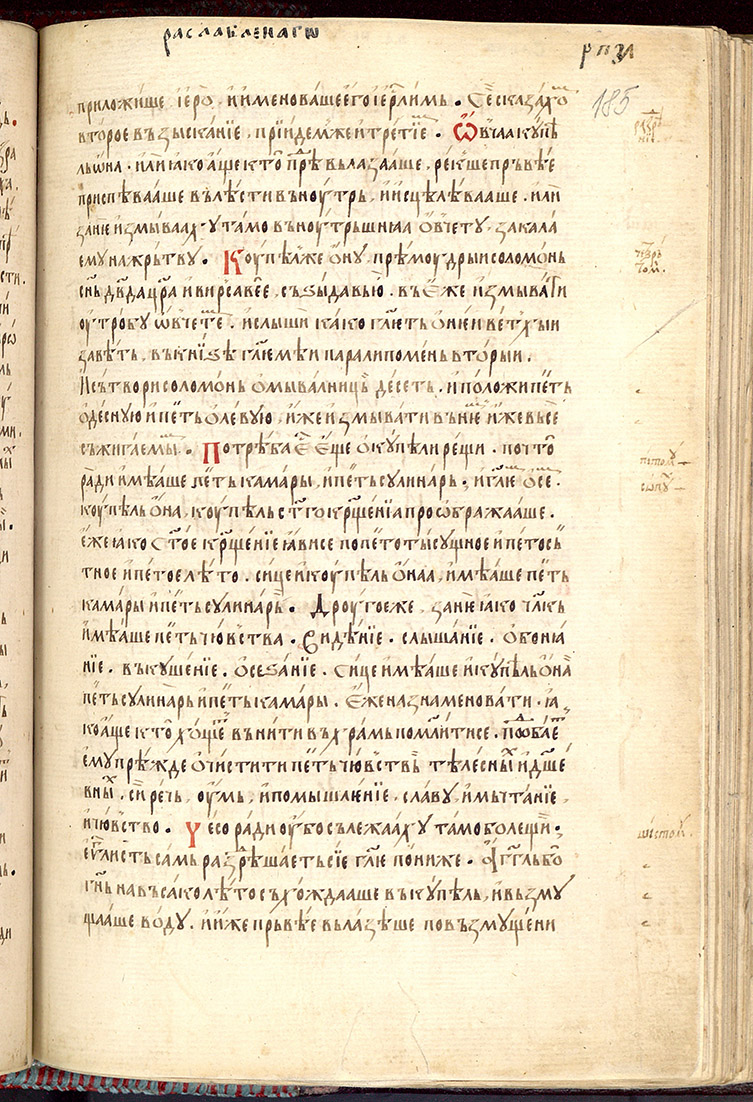 раслабленагѡ
рпз҃і
185
приложише іеро, и именовашеего іерⷭ҇лимь. Се сказахо
второе възысканїе, прїидем же и третїе. Ѡвчаа купѣ
льѡна. или іако аще кто прѣ вьлазааше, рекше прьвѣе
приспѣвааше вълѣсти вьноутрь, и исцѣлѣвааше. или
зане измываахѹ тамо вьноутрьшніаа ѡвчетѹ, закала
емѹ на жрьтвѹ. Коупѣл же ѡнѹ, прѣмоудрыи соломонь
сн҃ь дв҃да цр҃а и вирсавее, съзыдавыѡ. въ еже измывати
оутробѹ ѡвчете. и слыши како гл҃еть о ніеи ветхыи
завѣть, въ кнїзѣ гл҃емѣи паралипомень вторыи.
И сътвори соломонь омывалниць десеть. и положи петь
одесную и петь о левую, иже измывати въ ніе иже въсе
съжигаемы. Потрѣба е҃ еще о купѣли рещи. почто
ради имѣаше петь камары, и петь сулинарь; и гл҃ю ѡсе.
коупѣль ѡна, коупѣль ст҃го крщ҃енїа проѡбражааше.
еже іако ст҃ое крщ҃енїе іависе по петотысущное и петосъ
тное и петое лѣто. сице и коупѣль ѡнаа, имѣаше петь
камары и петь сулинарь. Дроугое же, зане іако чл҃кь
имѣаше петь чювства. Видѣнїе. слышанїе. обоніа
нїе. вькушенїе. осезанїе. Сице имѣаше и купѣль ѡна
петь сулинарь и петь камары. Еже назнаменовати. іа
ко аще кто хощеⷮ вьнити вь храмь помлⷧитисе. подобаеⷮ
ему прѣжде очистити петь чювствь тѣлесныⷯ и дш҃е
вныⷯ, сирѣчь, оумь, и помышленїе, славу, и мьчтанїе,
и чювство. Чесо ради оубо сълежаахѹ тамо болещїи;
еѵⷢ҇листь самь разрѣшаеть сїе гл҃ю пониже. Агг҃ль бо
гн҃ь на въсако лѣто съхождааше вь купѣль, и възмѹ
щааше водѹ. и иже прьвѣе вьлазѣше по възмущени
разрѣ
нїе.
четврь
том.
петомꙋ
сьпꙋ
шестом.